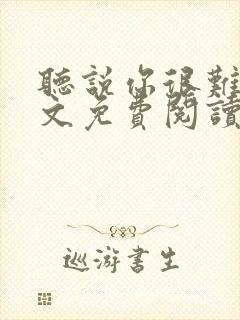 聽說你很難
文免費閱讀
巡游書生